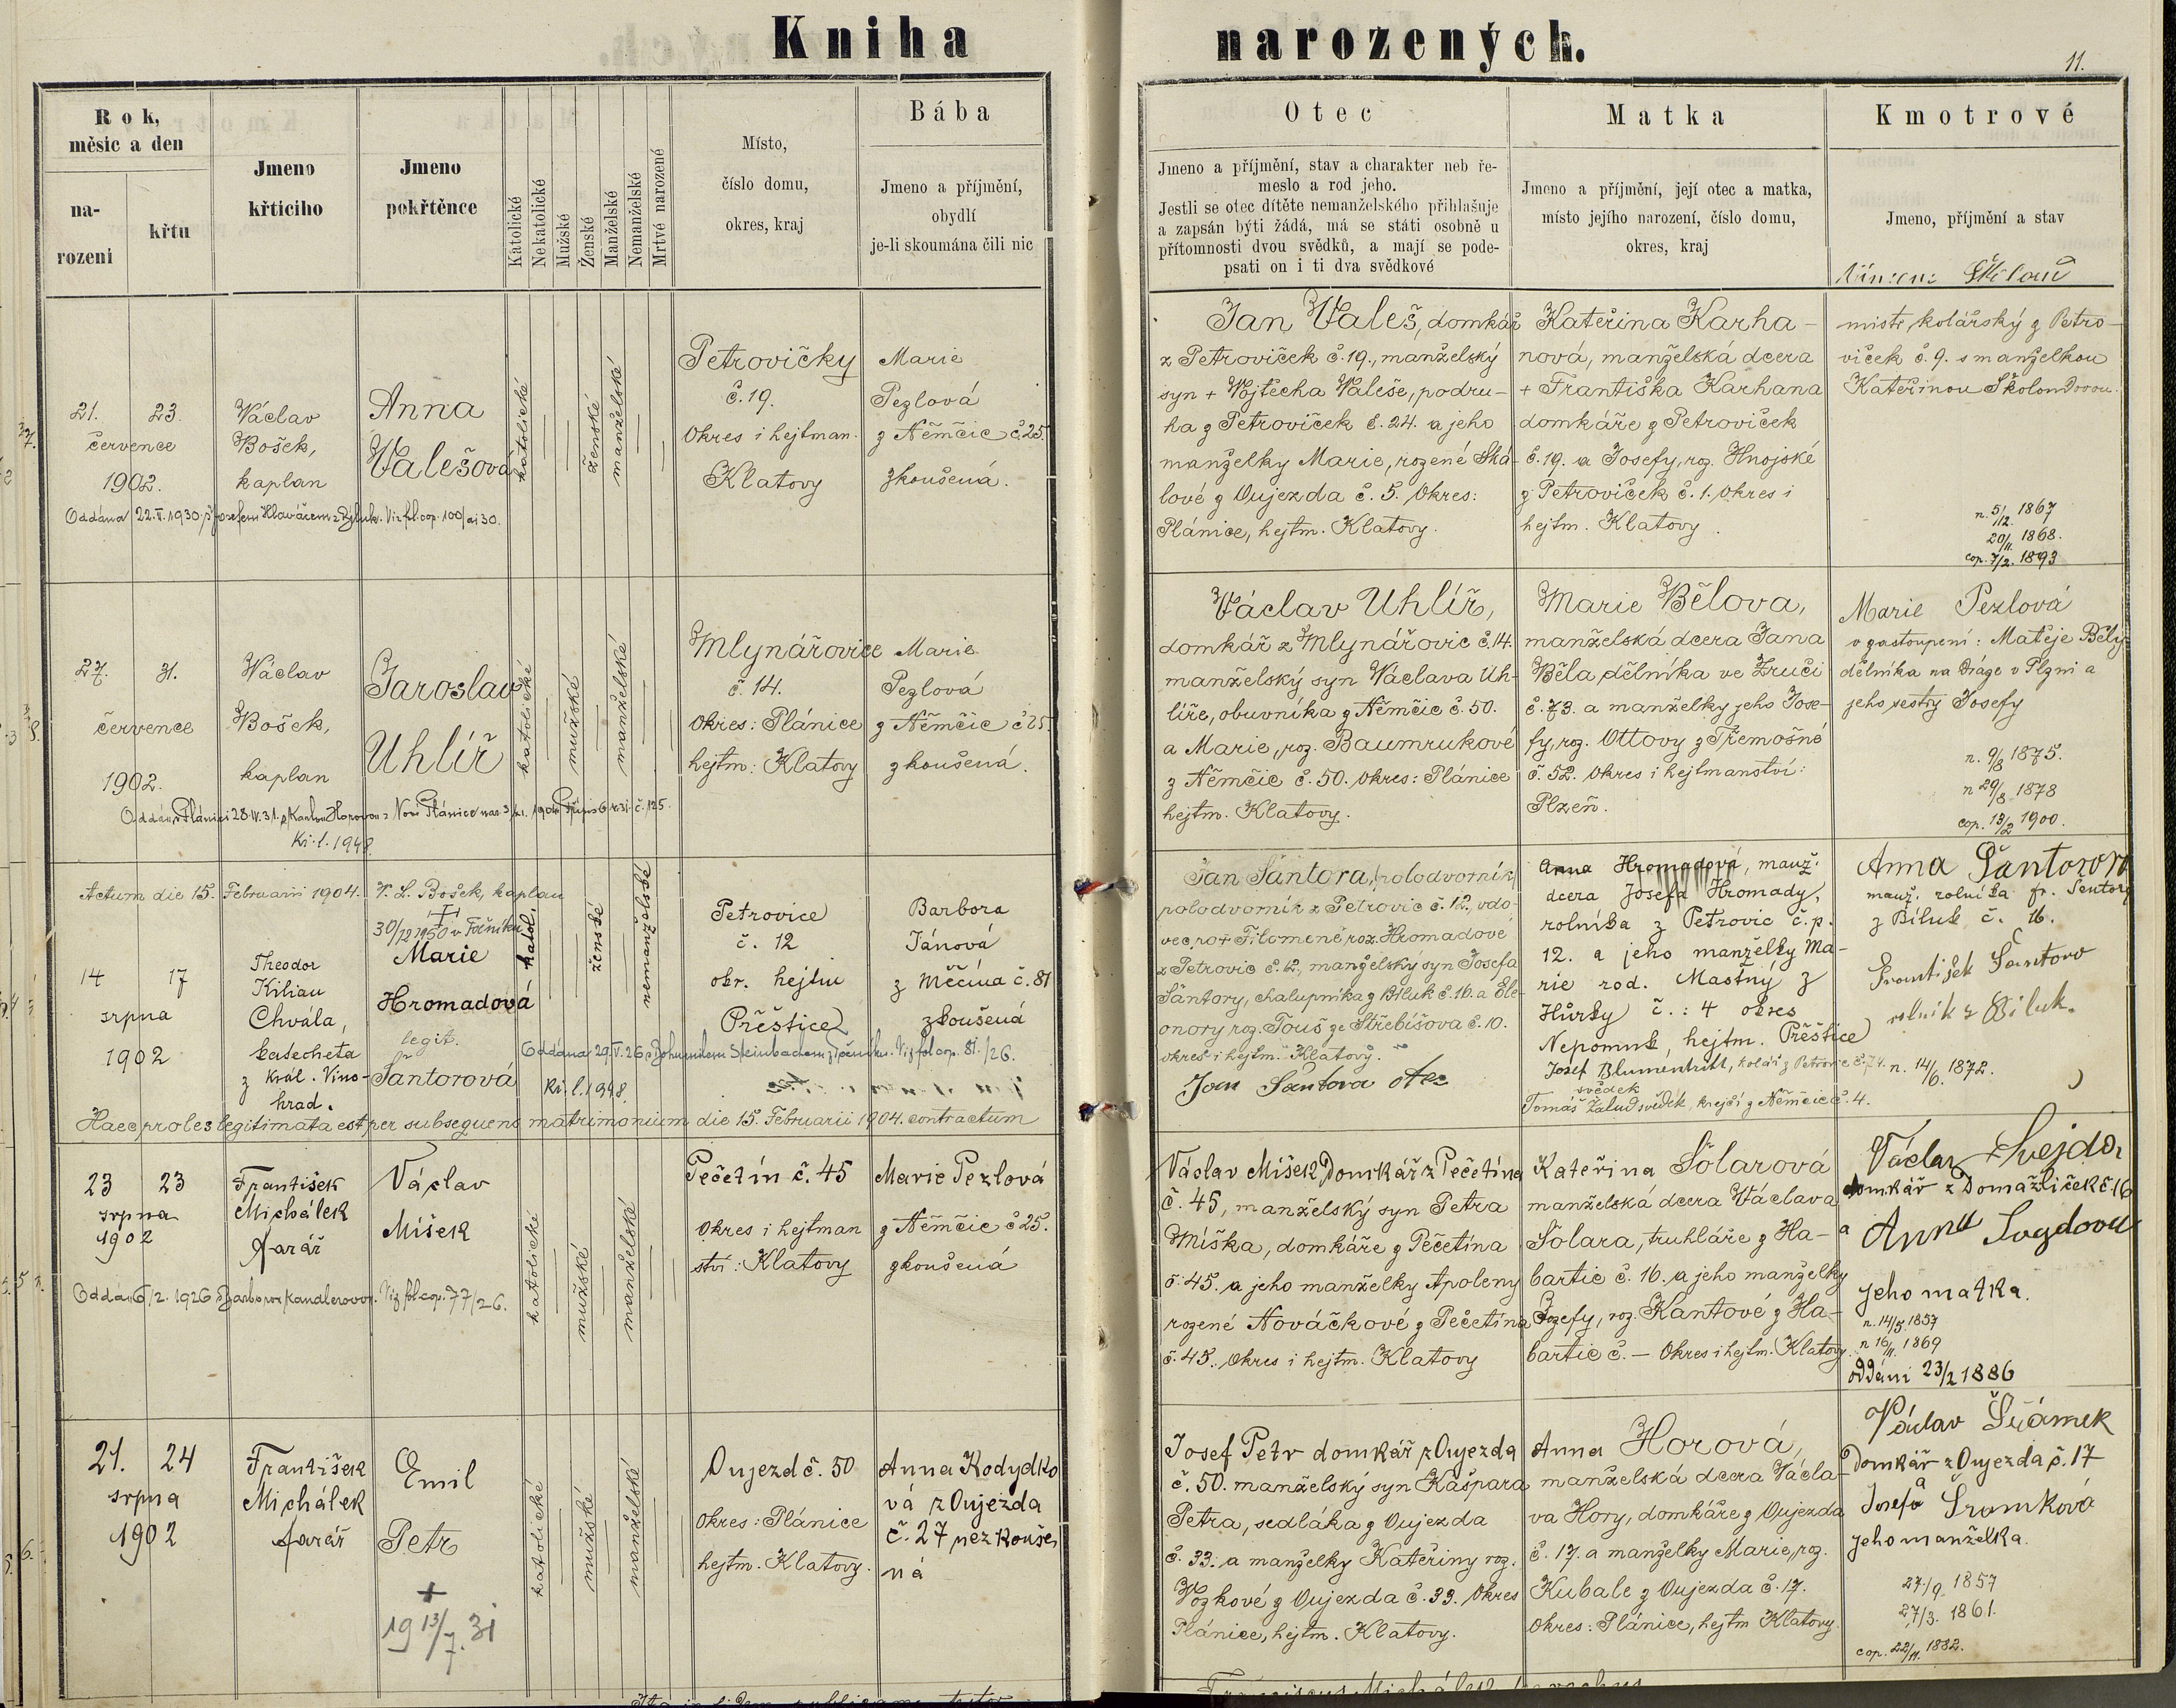 Kniha narozených.
11.
Rok, měsíc a den
narození
křtu
Jmeno křtícího
Jmeno pokřtěnce
Katolické
Nekatolické
Mužské
Ženské
Manželské
Nemanželské
Mrtvé narozené
Místo,
číslo domu,
okres, kraj
Bába
Jmeno a příjmění,
obydlí
je-li skoumána čili nic
Otec
Jmeno a příjmění, stav a charakter neb ře-
meslo a rod jeho.
Jestli se otec dítěte nemanželského přihlašuje
a zapsán býti žádá, má se státi osobně u
přítomnosti dvou svědků, a mají se pode-
psati on i ti dva svědkové
Matka
Jmeno a příjmění, její otec a matka,
místo jejího narození, číslo domu,
okres, kraj
Kmotrové
Jmeno, příjmění a stav
21. 23.
července
1902.
Václav
Bošek,
kaplan
Anna
Valešová
katolické
ženské
manželské
Petrovičky
č. 19.
Okres i hejtman.
Klatovy
Marie
Pezlová
z Němčic č. 25.
zkoušená.
Oddána 22. V. 1930 s Josefem Hlaváčem z Bíluk. Viz fol. cop. 100/ai 30.
Jan Valeš, domkář
z Petroviček č. 19., manželský
syn + Vojtěcha Valeše, podru-
ha z Petroviček č. 24. a jeho
manželky Marie, rozené Ská-
lové z Oujezda č. 5. Okres:
Plánice, hejtm. Klatovy.
Kateřina Karha-
nová, manželská dcera
+ Františka Karhana
domkáře z Petroviček
č. 19. a Josefy, roz. Hnojské
z Petroviček č. 1. Okres i
hejtm. Klatovy.
mistr kolářský z Petro-
viček č. 9. s manželkou
Kateřinou
n. 5/12. 1867
20/11. 1868.
cop. 7/2. 1893
27. 31.
července
1902.
Václav
Bošek,
kaplan
Jaroslav
Uhlíř
katolické
mužské
manželské
Mlynářovice
č. 14.
Okres: Plánice
hejtm: Klatovy
Marie
Pezlová
z Němčic č 25.
zkoušená.
Oddán v Plánici 28. IV. 31.
Ki. l. 1948.
Václav Uhlíř,
domkář z Mlynářovic č. 14.
manželský syn Václava Uh-
líře, obuvníka z Němčic č. 50.
a Marie, roz. Baumrukové
z Němčic č. 50. Okres: Plánice
hejtm. Klatovy.
Marie Bělova,
manželská dcera Jana
Běla, dělníka ve Zruči
č. 73. a manželky jeho Jose-
fy, roz. Ottovy z Třemošné
č. 52. Okres i hejtmanství:
Plzeň.
Marie Pezlová
v zastoupení: Matěje Běly,
dělníka na dráze v Plzni a
jeho sestry Josefy
n. 9/3 1875.
n 29/8. 1878
cop. 13/2 1900.
Actum die 15. Februarii 1904. V. L. Bošek, kaplan
30/12 1950 v Točníku
14 17
srpna
1902
Theodor
Kilian
Chvála,
katecheta
z král. Vino-
hrad.
Marie
Hromadová
legit.
Šantorová
katol.
ženské
nemanželské
Petrovice
č. 12
okr. hejtm
Přeštice
Barbora
Jánová
z Měčína č. 81
zkoušená
Oddána 29. V. 26 s Bohumilem Steinbachem z Točníku. Viz fol cop. 81./26.
Ki. l. 1948.
Haec proles legitimata est per subsequens matrimonium die 15. Februarii 1904. contractum
Jan Šantora, (polodvorník)
polodvorník z Petrovic č. 12., vdo-
vec po + Filomeně roz. Hromadové
z Petrovic č. 12., manželský syn Josefa
Šantory, chalupníka z Bíluk č. 16. a Ele-
onory roz. Touš ze Střebíšova č. 10.
okres i hejtm. Klatovy.
Jan Šantora otec
Anna Hromadová, manž.
dcera Josefa Hromady,
rolníka z Petrovic č.p.
12. a jeho manželky Ma-
rie rod. Mastný z
Hůrky č.: 4 okres
Nepomuk, hejtm. Přeštice
Josef Blumentritt, kolář z Petrovic č. 74.
svědek
Tomáš Žalud svědek, krejčí z Němčic č. 4.
Anna Šantorová
manž. rolníka fr. Šentory
z Bíluk č. 16.
František Šantora
rolník z Bíluk.
n. 14/6. 1872.
23 23
srpna
1902
František
Michálek
farář
Václav
Míšek
katolické
mužské
manželské
Pečetín č. 45
Okres i hejtman
ství: Klatovy
Marie Pezlová
z Němčic č 25.
zkoušená
Oddán 6/2. 1926 s Barborou Kandlerovou. Viz fol cop. 77/26.
Václav Míšek Domkář z Pečetína
č. 45, manželský syn Petra
Míška, domkáře z Pečetína
č. 45. a jeho manželky Apoleny
rozené Nováčkové z Pečetína
č. 45. Okres i hejtm. Klatovy
Kateřina Šolarová
manželská dcera Václava
Šolara, truhláře z Ha-
bartic č. 16. a jeho manželky
Jozefy, roz. Kantové z Ha-
bartic č. — Okres i hejtm. Klatovy.
Václav Švejda,
domkář z Domažliček č. 16
a
jeho matka.
n. 14/5 1857
n 16/11. 1869
oddáni 23/2 1886
21. 24
srpna
1902
František
Michálek
farář
Emil
Petr
+
19 13/7. 31
katolické
mužské
manželské
Oujezd č. 50
Okres: Plánice
hejtm. Klatovy.
Anna Kodydko
vá z Oujezda
č. 27 nezkouše
ná
Josef Petr domkář z Oujezda
č. 50. manželský syn Kašpara
Petra, sedláka z Oujezda
č. 33. a manželky Kateřiny roz.
Vozkové z Oujezda č. 33. Okres
Plánice, hejtm. Klatovy.
Anna Horová,
manželská dcera Václa-
va Hory, domkáře z Oujezda
č. 17. a manželky Marie, roz.
Kubale z Oujezda č. 17.
Okres: Plánice, hejtm Klatovy.
Václav Šrámek
Domkář z Oujezda č. 17
a
Josefa Šramková
jeho manželka.
27./9. 1857
27/3. 1861.
cop. 22/11. 1882.